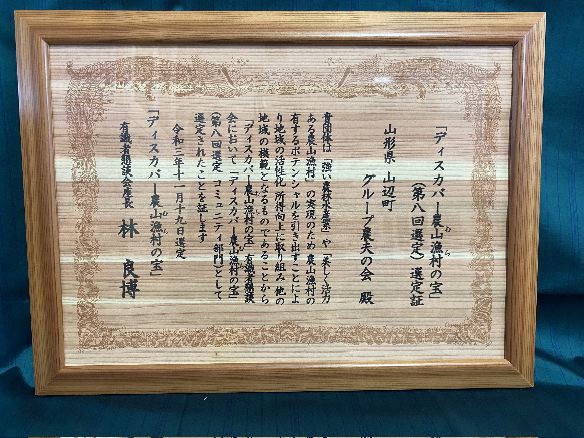 「ディスカバー農山漁村の宝」
むら
（第八回選定）選定証
山形県 山辺町
グループ農夫の会 殿
貴団体は「強い農林水産業」や「美しく活力
ある農山漁村」の実現のため農山漁村の
有するポテンシャルを引き出すことによ
り地域の活性化 所得向上に取り組み 他の
地域の模範となるものであることから
「ディスカバー農山漁村の宝」有識者懇談
会において「ディスカバー農山漁村の宝」
（第八回選定 コミュニティ部門）として
選定されたことを証します
令和三年十一月十九日選定
「ディスカバー農山漁村の宝」
むら
有識者懇談会座長 林 良博